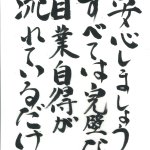 安心しましょう
すべては完璧な
自業自得が
流れているだけ